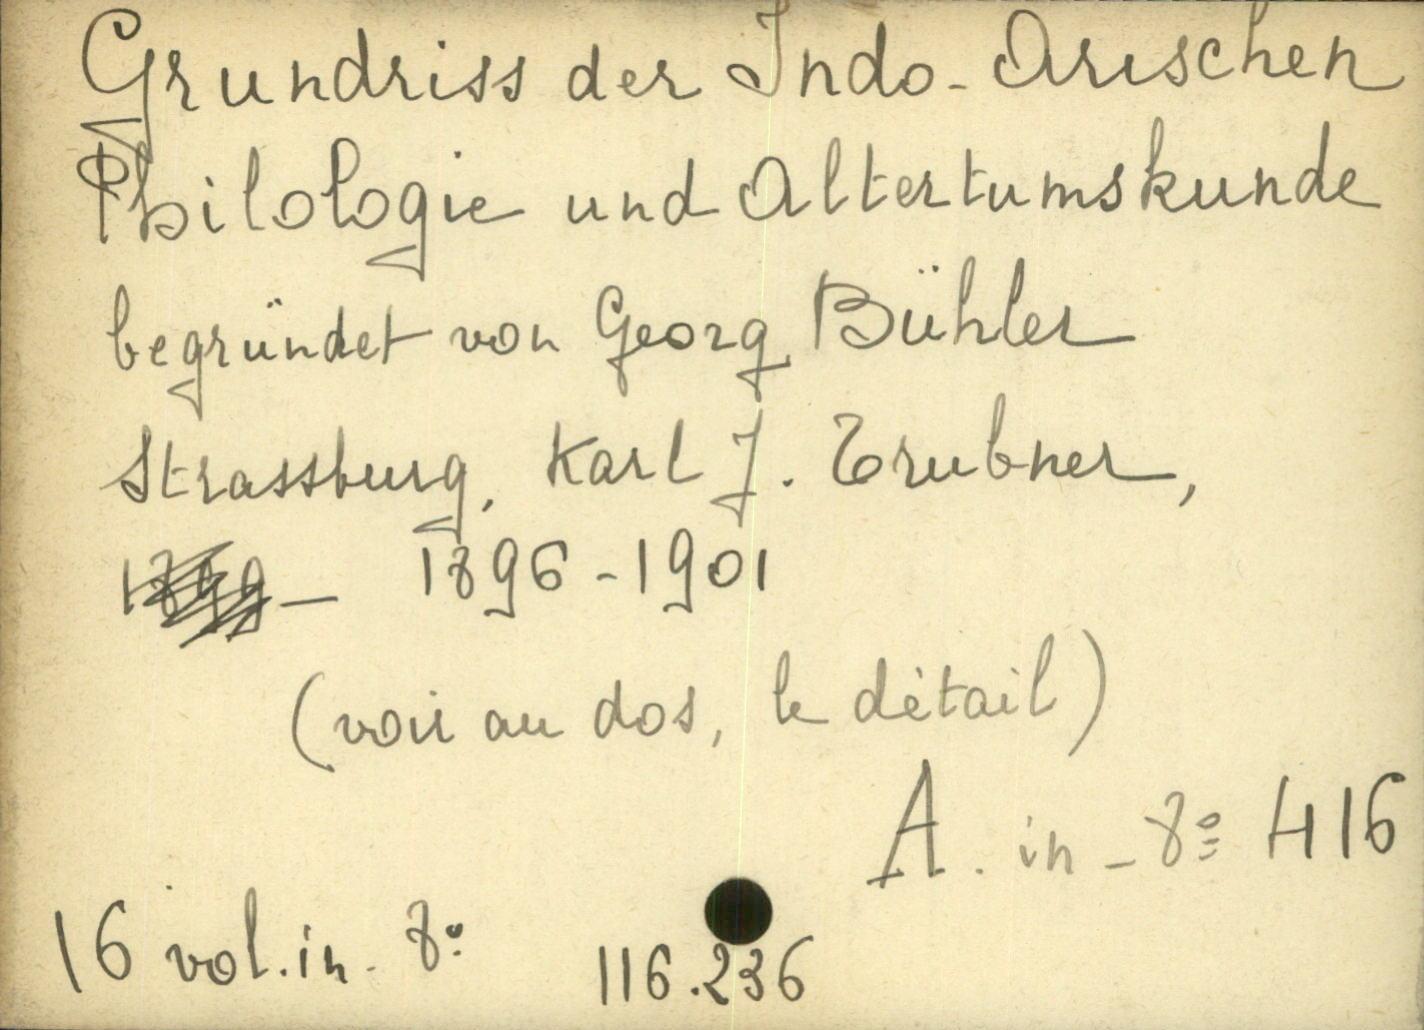 Grundriss der Indo-Arischen
Philologie und Altertumskunde
begründet von Georg Bühler
Strassburg, Karl J. Trubner,
— 1896-1901
(voir au dos, le détail)
A. in-8º 416
16 vol. in-8º 116.236